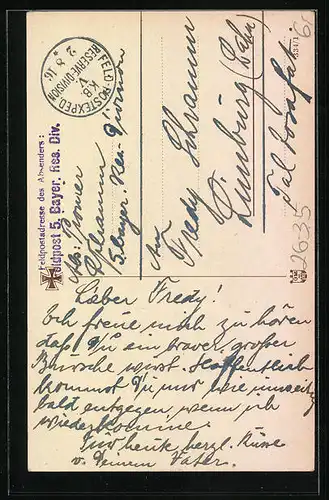 FELD-POSTEXPED
K.B.
V.
RESERVE-DIVISION
2 8 16
Feldpostadresse des Absenders:
Feldpost 5. Bayer. Res. Div.
Abs: Pionier
Schramm
5 Bayr Res. Division
An
Fredy Schramm
Limburg (Lahn)
Tal Josafat
2635
Lieber Fredy!
Ich freue mich zu hören
daß Du ein braver großer
Bursche wirst. Hoffentlich
kommst Du mir
bald entgegen, wenn ich
wiederkomme.
Für heute herzl. Küsse
v. Deinem Vater.